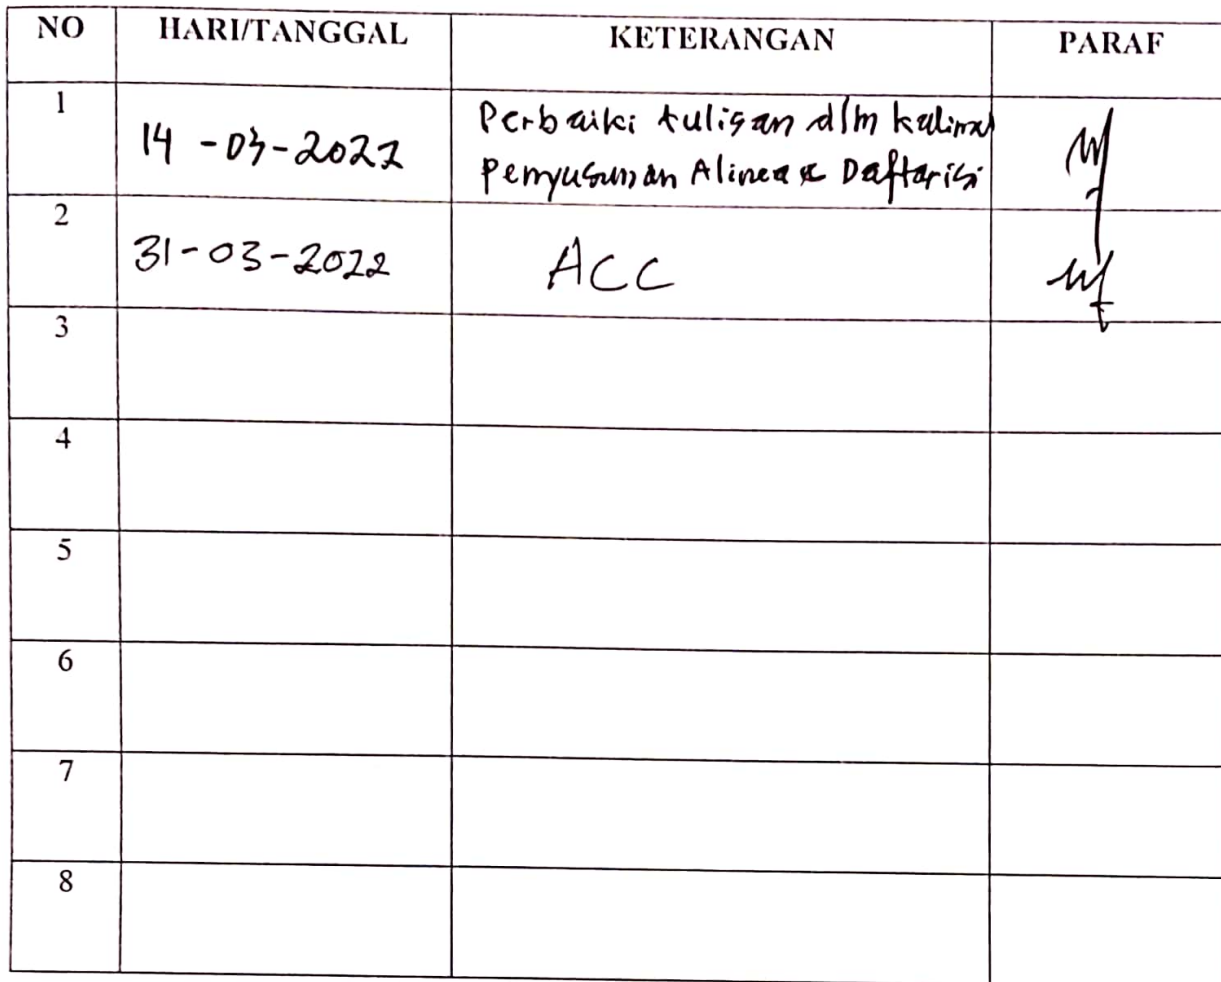 NO HARI/TANGGAL KETERANGAN PARAF
1
14 -03-2022
Perbaiki tulisan dlm kalimat
Penyusunan Alinea & Daftar isi
2
31-03-2022 ACC
3
4
5
6
7
8